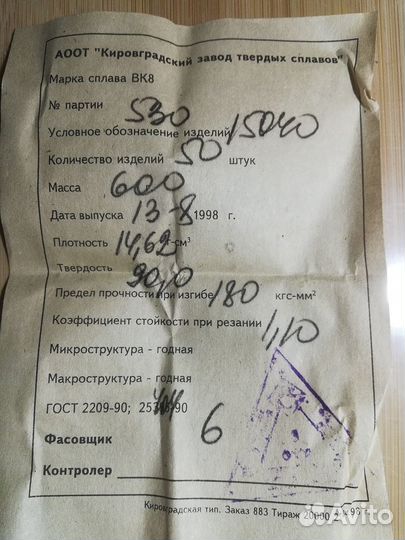 АООТ "Кировградский завод твердых сплавов"
Марка сплава ВК8
№ партии 530
Условное обозначение изделий 15040
Количество изделий 50 штук
Масса 600
Дата выпуска 13-8 1998 г.
Плотность 14,62 см³
Твердость 90,0
Предел прочности при изгибе 180 кгс-мм²
Коэффициент стойкости при резании 1,10
Микроструктура - годная
Макроструктура - годная
ГОСТ 2209-90; 90
Фасовщик 6
Контролер
Кировградская тип. Заказ 883 Тираж 20000 98 г.
Avito